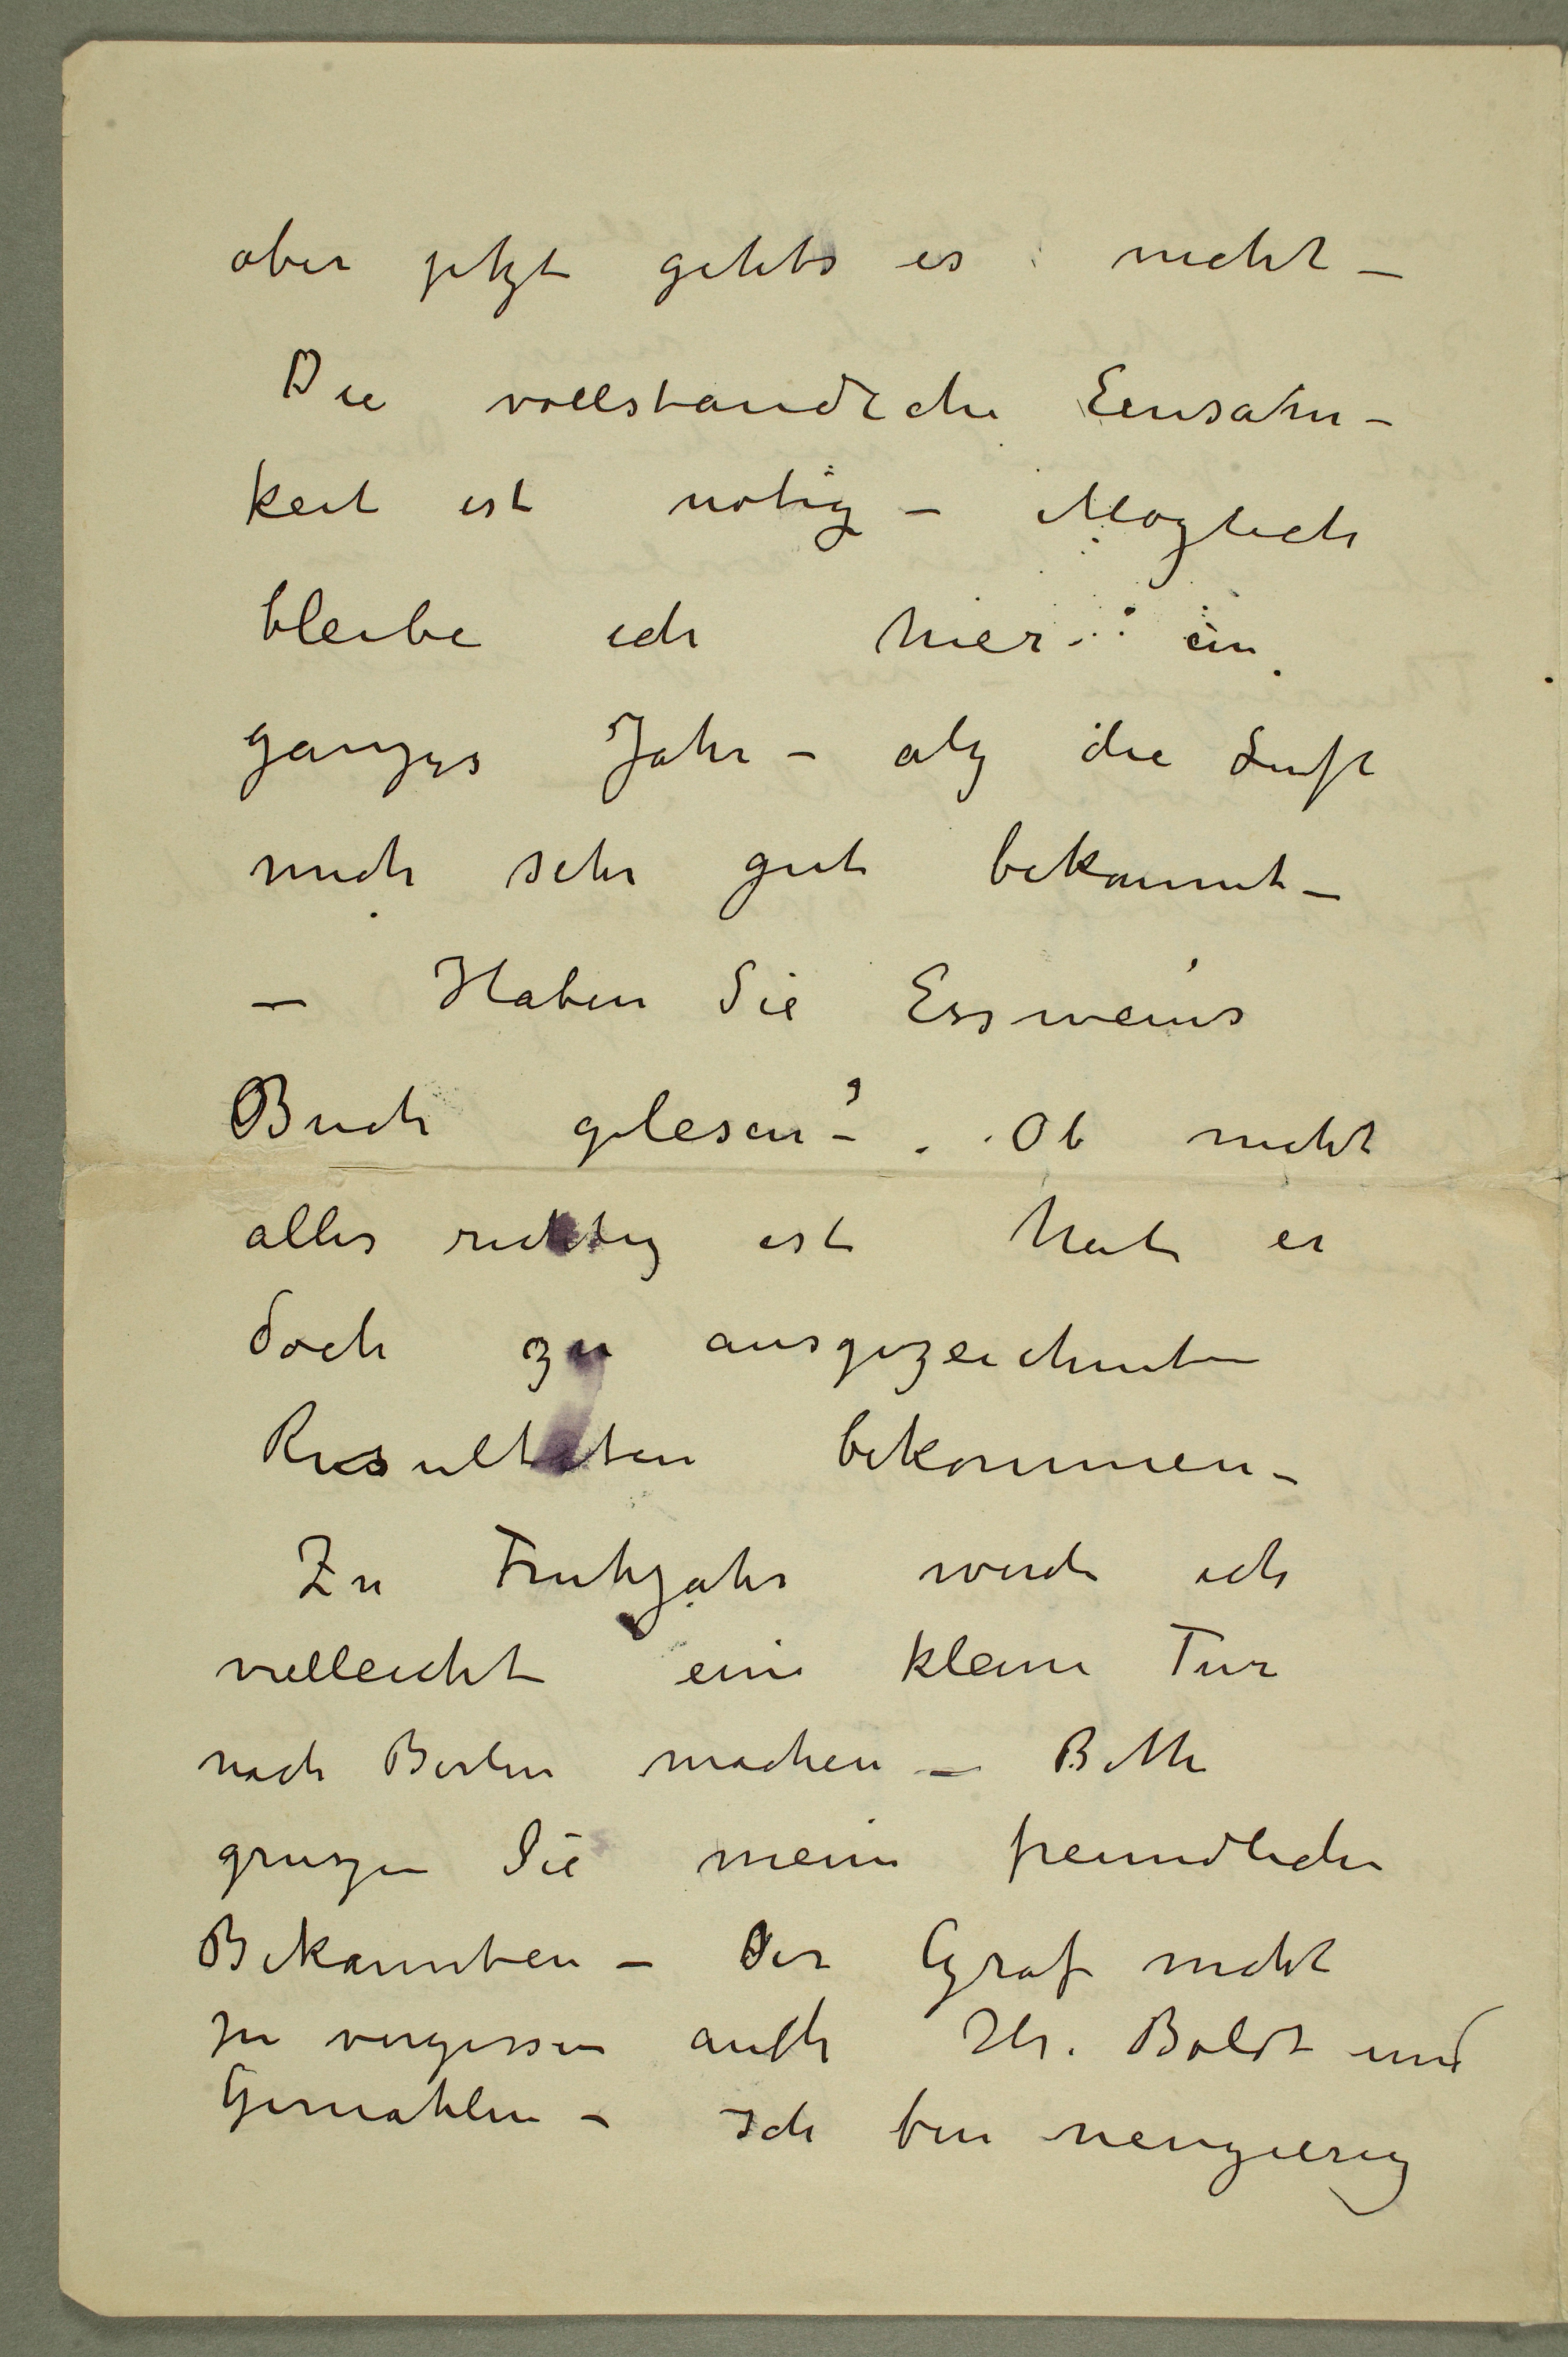 aber jetzt gehts es nicht –
Die vollstandiche Einsam-
keit ist nötig – Moglich
bleibe ich hier ein
ganzes Jahr – alz die Luft
mich sehr gut bekommt –
– Haben Sie Essweins
Buch gelesen –? Ob nicht
alles richtig ist hat er
doch zu ausgezeichneten
Resultaten bekommen –
Zu Fruhjahr werde ich
vielleicht eine kleine Tur
nach Berlin machen – Bitte
gruszen Sie meine freundliche
Bekannten – Der Graf nicht
zu vergessen auch Hr. Boldt und
Gemahlin – Ich bin neugierig